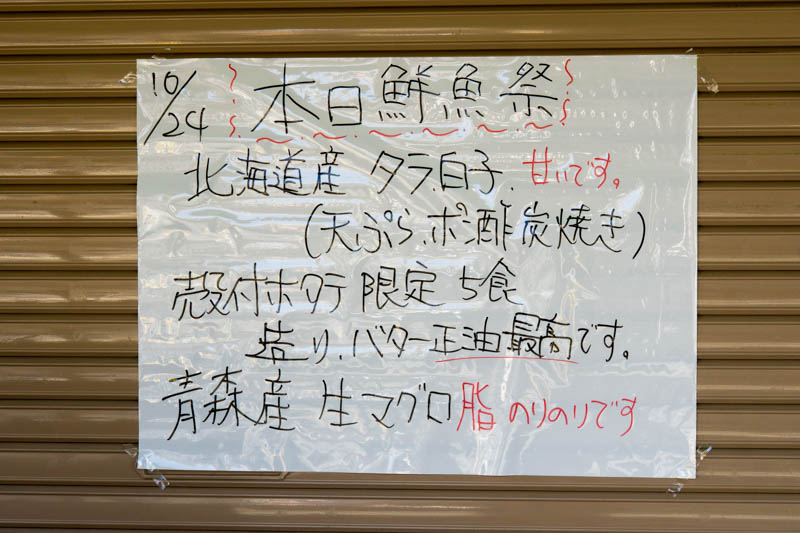 10/24 本日鮮魚祭
北海道産 タラ白子、甘いです。
(天ぷら、ポン酢炭焼き)
殻付ホタテ 限定 5食
造り、バター正油最高です。
青森産 生マグロ脂のりのりです